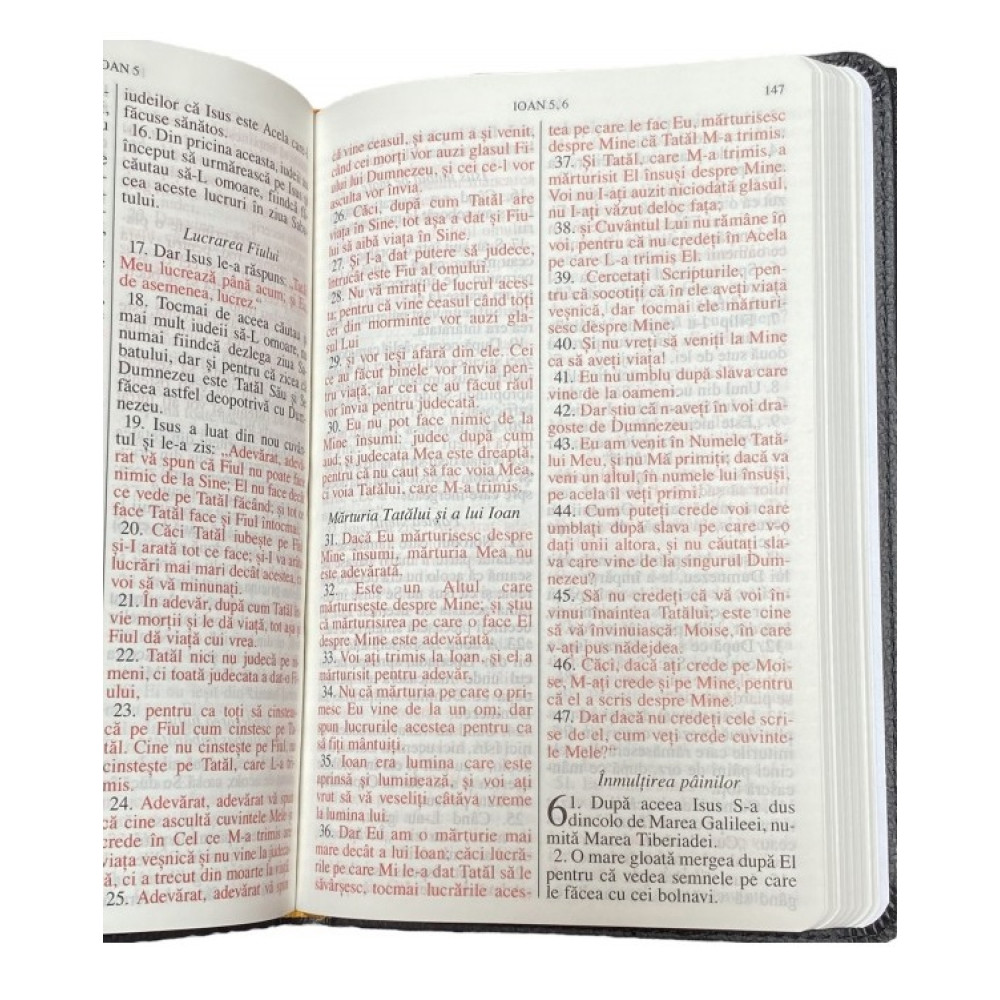 IOAN 5
iudeilor că Isus este Acela care-l
făcuse sănătos.
16. Din pricina aceasta, iudeii au
început să urmărească pe Isus și
căutau să-L omoare, fiindcă
cea aceste lucruri în ziua
tului.
Lucrarea Fiului
17. Dar Isus le-a răspuns: „Tatăl
Meu lucrează până acum; și Eu
de asemenea, lucrez.”
18. Tocmai de aceea căutau
mai mult iudeii să-L omoare, nu
numai fiindcă dezlega ziua
batului, dar și pentru că zicea că
Dumnezeu este Tatăl Său și Se
făcea astfel deopotrivă cu Dum-
nezeu.
19. Isus a luat din nou cuvân-
tul și le-a zis: „Adevărat, adevă-
rat vă spun că Fiul nu poate face
nimic de la Sine; El nu face decât
ce vede pe Tatăl făcând; și tot ce
face Tatăl face și Fiul întocmai.
20. Căci Tatăl iubește pe Fiul
și-I arată tot ce face; și-I va arăta
lucrări mai mari decât acestea, ca
voi să vă minunați.
21. În adevăr, după cum Tatăl în-
vie morții și le dă viață, tot așa și
Fiul dă viață cui vrea.
22. Tatăl nici nu judecă pe
meni, ci toată judecata a dat-o Fi-
ului,
23. pentru ca toți să cinstească
că pe Fiul cum cinstesc pe Ta-
tăl. Cine nu cinstește pe Fiul, nu
cinstește pe Tatăl, care L-a tri-
mis.
24. Adevărat, adevărat vă spun
că cine ascultă cuvintele Mele și
crede în Cel ce M-a trimis are
viața veșnică și nu vine la judeca-
ă, ci a trecut din moarte la viață.
25. Adevărat, adevărat vă spun
IOAN 5, 6
147
că vine ceasul, și acum a și venit,
când cei morți vor auzi glasul Fi-
ului lui Dumnezeu, și cei ce-l vor
asculta vor învia.
26. Căci, după cum Tatăl are
viața în Sine, tot așa a dat și Fiu-
lui să aibă viața în Sine.
27. Și I-a dat putere să judece,
întrucât este Fiu al omului.
28. Nu vă mirați de lucrul aces-
ta; pentru că vine ceasul când toți
cei din morminte vor auzi gla-
sul Lui
29. și vor ieși afară din ele. Cei
ce au făcut binele vor învia pen-
tru viață; iar cei ce au făcut răul
vor învia pentru judecată.
30. Eu nu pot face nimic de la
Mine însumi: judec după cum
aud; și judecata Mea este dreaptă,
pentru că nu caut să fac voia Mea,
ci voia Tatălui, care M-a trimis.
Mărturia Tatălui și a lui Ioan
31. Dacă Eu mărturisesc despre
Mine însumi, mărturia Mea nu
este adevărată.
32. Este un Altul care
mărturisește despre Mine; și știu
că mărturisirea pe care o face El
despre Mine este adevărată.
33. Voi ați trimis la Ioan, și el a
mărturisit pentru adevăr.
34. Nu că mărturia pe care o pri-
mesc Eu vine de la un om; dar
spun lucrurile acestea pentru ca
să fiți mântuiți.
35. Ioan era lumina care este
aprinsă și luminează, și voi ați
vrut să vă veseliți câtăva vreme
la lumina lui.
36. Dar Eu am o mărturie mai
mare decât a lui Ioan; căci lucră-
rile pe care Mi le-a dat Tatăl să le
săvârșesc, tocmai lucrările aces-
tea pe care le fac Eu, mărturisesc
despre Mine că Tatăl M-a trimis.
37. Și Tatăl, care M-a trimis, a
mărturisit El însuși despre Mine.
Voi nu I-ați auzit niciodată glasul,
nu I-ați văzut deloc fața;
38. și Cuvântul Lui nu rămâne în
voi, pentru că nu credeți în Acela
pe care L-a trimis El.
39. Cercetați Scripturile, pen-
tru că socotiți că în ele aveți viața
veșnică, dar tocmai ele mărturi-
sesc despre Mine.
40. Și nu vreți să veniți la Mine
ca să aveți viața!
41. Eu nu umblu după slava care
vine de la oameni.
42. Dar știu că n-aveți în voi dra-
goste de Dumnezeu.
43. Eu am venit în Numele Tată-
lui Meu, și nu Mă primiți; dacă va
veni un altul, în numele lui însuși,
pe acela îl veți primi.
44. Cum puteți crede voi care
umblați după slava pe care v-o
dați unii altora, și nu căutați sla-
va care vine de la singurul Dum-
nezeu?
45. Să nu credeți că vă voi în-
vinui înaintea Tatălui; este cine
să vă învinuiască: Moise, în care
v-ați pus nădejdea.
46. Căci, dacă ați crede pe Moi-
se, M-ați crede și pe Mine, pentru
că el a scris despre Mine.
47. Dar dacă nu credeți cele scri-
se de el, cum veți crede cuvinte-
le Mele?”
Înmulțirea pâinilor
6 1. După aceea Isus S-a dus
dincolo de Marea Galileei, nu-
mită Marea Tiberiadei.
2. O mare gloată mergea după El
pentru că vedea semnele pe care
le făcea cu cei bolnavi.